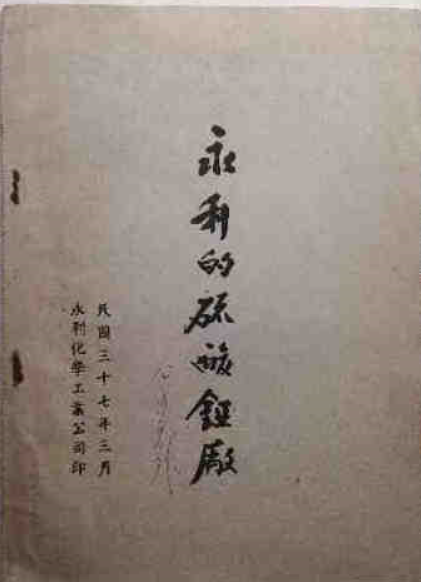 永利的硫酸錏厰
民國三十七年三月
永利化學工業公司印